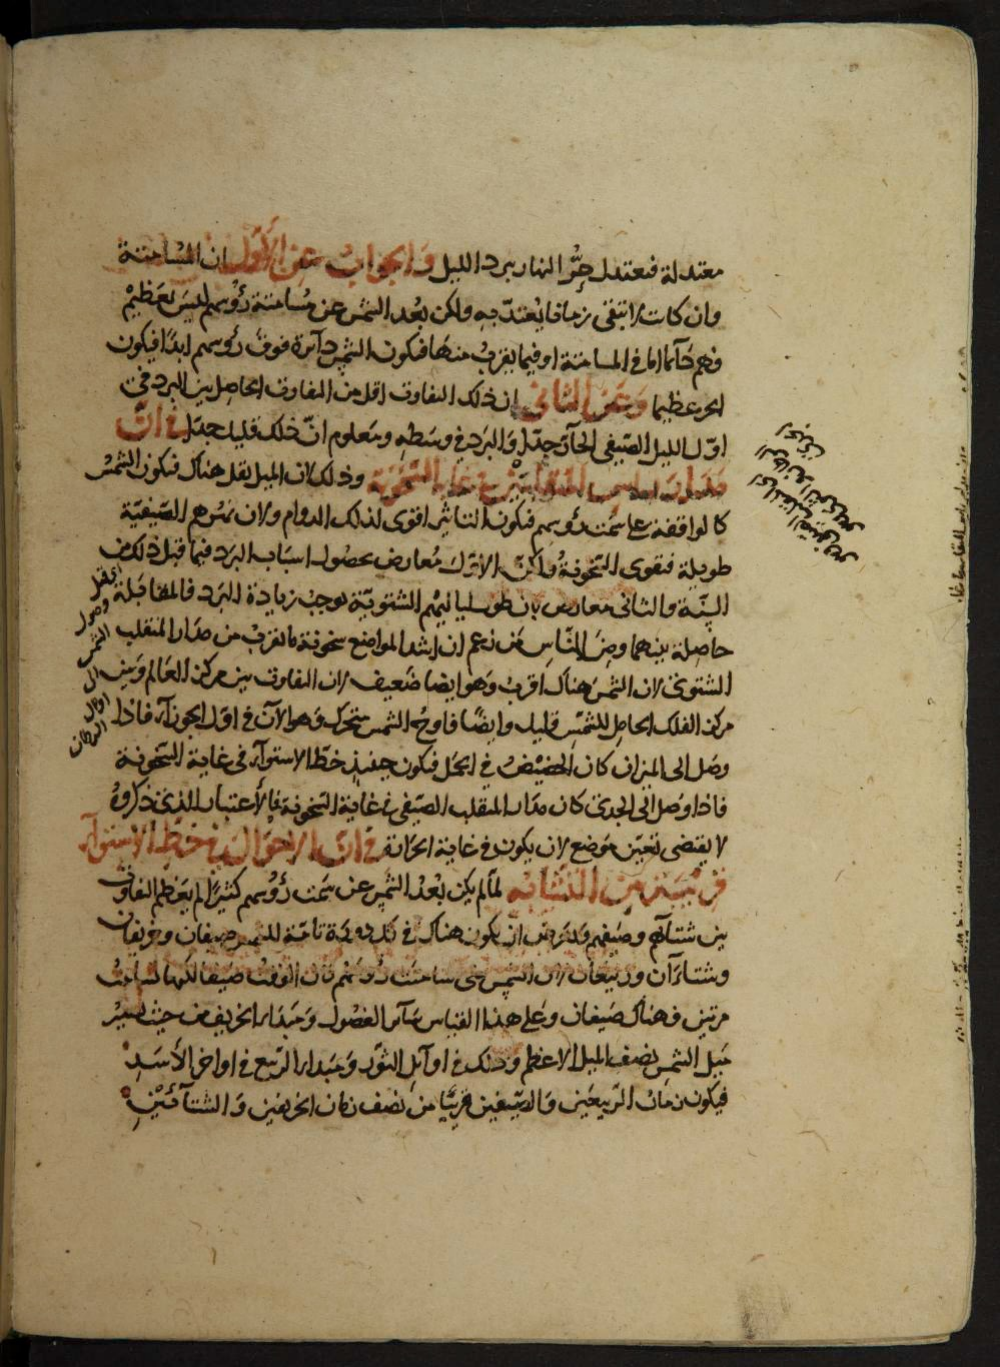 معتدلة فيعتدل حر النهار ببرد الليل والجواب عن الأول ان المسامتة
وان كانت لا تبقى زمانا يعتد به ولكن بعد الشمس عن مسامتة رؤسهم ليس بعظيم
فهم دائما اما في المسامتة او فيما يقرب منها فيكون الشمس دائرة فوق رؤسهم ابدا فيكون
الحر عظيما وعن الثاني ان ذلك التفاوت اقل من التفاوت الحاصل بين البرد في
اول الليل الصيفي الحار جدا والبرد في وسطه ومعلوم ان ذلك قليل جدا في ان
مدار راس المنقلبين في غاية السخونة وذلك لان الميل يقل هناك فيكون الشمس
كالواقفة على سمت رؤسهم فيكون التاثير اقوى لذلك الدوام ولان نهرهم الصيفية
طويلة فتقوى السخونة ولكن الاول معارض بحصول اسباب البرد فيما قبل ذلك من
السنة والثاني معارض بان طول لياليهم الشتوية يوجب زيادة البرد فالمقابلة
حاصلة بينهما ومن الناس من زعم ان اشد المواضع سخونة ما يقرب من مدار المنقلب
الشتوى لان الشمس هناك اقرب وهو ايضا ضعيف لان التفاوت بين مركز العالم وبين
مركز الفلك الحاصل للشمس قليل وايضا فاوج الشمس متحرك وهو الآن في اول الجوزاء فاذا
وصل الى الميزان كان الحضيض في الحمل فيكون حينئذ خط الاستواء في غاية السخونة
فاذا وصل الى الجدى كان مدار المنقلب الصيفي في غاية السخونة فالأعتبار الذى ذكروه
لا يقتضى تعين موضع لان يكون في غاية الحرارة في ان الاحوال في خط الاستواء
قريبة من التشابه لما لم يكن بعد الشمس عن سمت رؤسهم كثيرا لم يعظم التفاوت
بين شتائهم وصيفهم ويعرض ان يكون هناك في كل دورة تامة للشمس صيفان وخريفان
وشتاءآن وربيعان لان الشمس متى سامتت رؤسهم كان الوقت صيفا لكنها تسامت
مرتين فهناك صيفان وعلى هذا القياس سائر الفصول ومبدأ الخريف من حيث يصير
ميل الشمس نصف الميل الاعظم وذلك في اوائل الثور ومبدأ الربيع في اواخر الأسد
فيكون زمان الربيعين والصيفين قريبا من نصف زمان الخريفين والشتائين
قبل
وصول
الشمس
الى
اوائل
السرطان